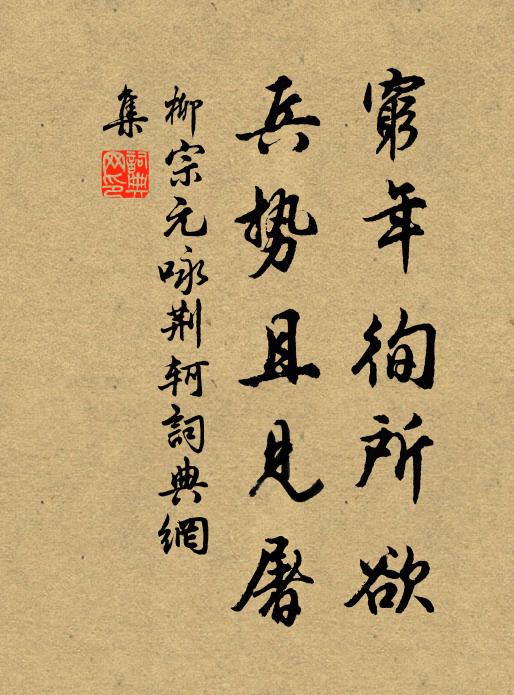 窮年徇所欲
兵势且見屠
柳宗元咏荆軻詞典網
集
詞典
网印